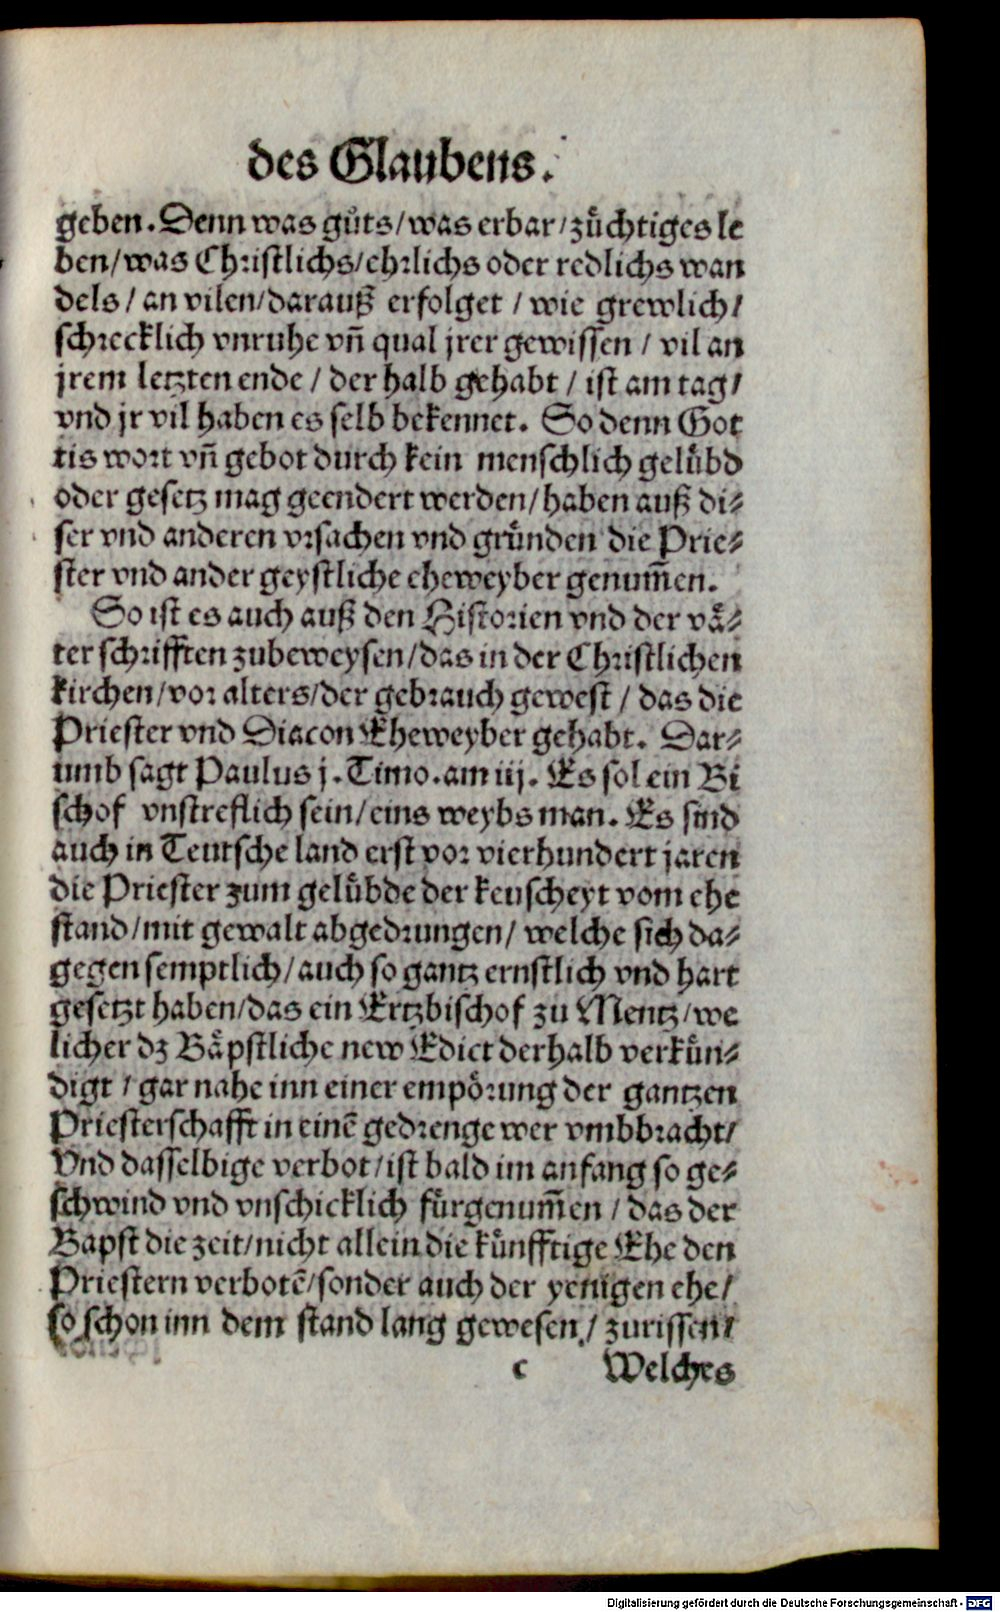 des Glaubens.
geben. Denn was gůts/was erbar/züchtiges le
ben/was Christlichs/ehrlichs oder redlichs wan
dels/an vilen/darauß erfolget/wie grewlich/
schrecklich vnruhe vñ qual jrer gewissen/vil an
jrem letzten ende/der halb gehabt/ist am tag/
vnd jr vil haben es selb bekennet. So denn Got
tis wort vñ gebot durch kein menschlich gelübd
oder gesetz mag geendert werden/haben auß di⸗
ser vnd anderen vrsachen vnd gründen die Prie⸗
ster vnd ander geystliche eheweyber genum̃en.
So ist es auch auß den Historien vnd der vä⸗
ter schrifften zubeweysen/das in der Christlichen
kirchen/vor alters/der gebrauch gewest/das die
Priester vnd Diacon Eheweyber gehabt. Dar⸗
umb sagt Paulus j. Timo. am iij. Es sol ein Bi
schof vnstreflich sein/eins weybs man. Es sind
auch in Teutsche land erst vor vierhundert jaren
die Priester zum gelübde der keuscheyt vom ehe
stand/mit gewalt abgedrungen/welche sich da⸗
gegen semptlich/auch so gantz ernstlich vnd hart
gesetzt haben/das ein Ertzbischof zu Mentz/we
licher dz Bäpstliche new Edict derhalb verkün⸗
digt/gar nahe inn einer empörung der gantzen
Priesterschafft in einẽ gedrenge wer vmbbracht/
Vnd dasselbige verbot/ist bald im anfang so ge⸗
schwind vnd vnschicklich fürgenum̃en/das der
Bapst die zeit/nicht allein die künfftige Ehe den
Priestern verbotẽ/sonder auch der yenigen ehe/
so schon inn dem stand lang gewesen/zurissen/
c Welches
Digitalisierung gefördert durch die Deutsche Forschungsgemeinschaft - DFG